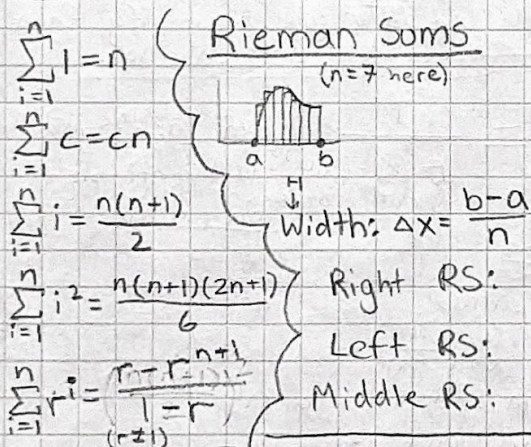 ∑_{i=1}^{n} 1 = n
∑_{i=1}^{n} c = cn
∑_{i=1}^{n} i = n(n+1)/2
∑_{i=1}^{n} i² = n(n+1)(2n+1)/6
∑_{i=1}^{n} r^i = (r - r^{n+1})/(1 - r)
(r≠1)
Rieman Sums
(n=7 here)
a b
Width: Δx = (b-a)/n
Right RS:
Left RS:
Middle RS: